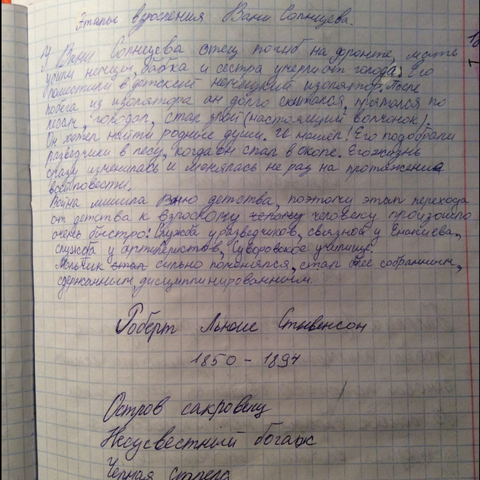 Этапы взросления Вани Солнцева.
У Вани Солнцева отец погиб на фронте, мать
убили немцы, бабка и сестра умерли от голода. Его
поместили в детский немецкий изолятор. После
побега из изолятора он долго скитался, прятался по
лесам, голодал, стал злой (настоящий волчонок).
Он хотел найти родные души. И нашел! Его подобрали
разведчики в лесу, когда он спал в окопе. Его жизнь
сразу изменилась и менялась не раз на протяжении
всей повести.
Война лишила Ваню детства, поэтому этап перехода
от детства к взрослому человеку произошло
очень быстро: служба у разведчиков, связной у Енакиева,
служба у артиллеристов, Суворовское училище.
Мальчик стал сильно поменялся, стал более собранным,
сдержанным, дисциплинированным.
Роберт Льюис Стивенсон
1850 - 1894
Остров сокровищ
Несусветный багаж
Черная стрела